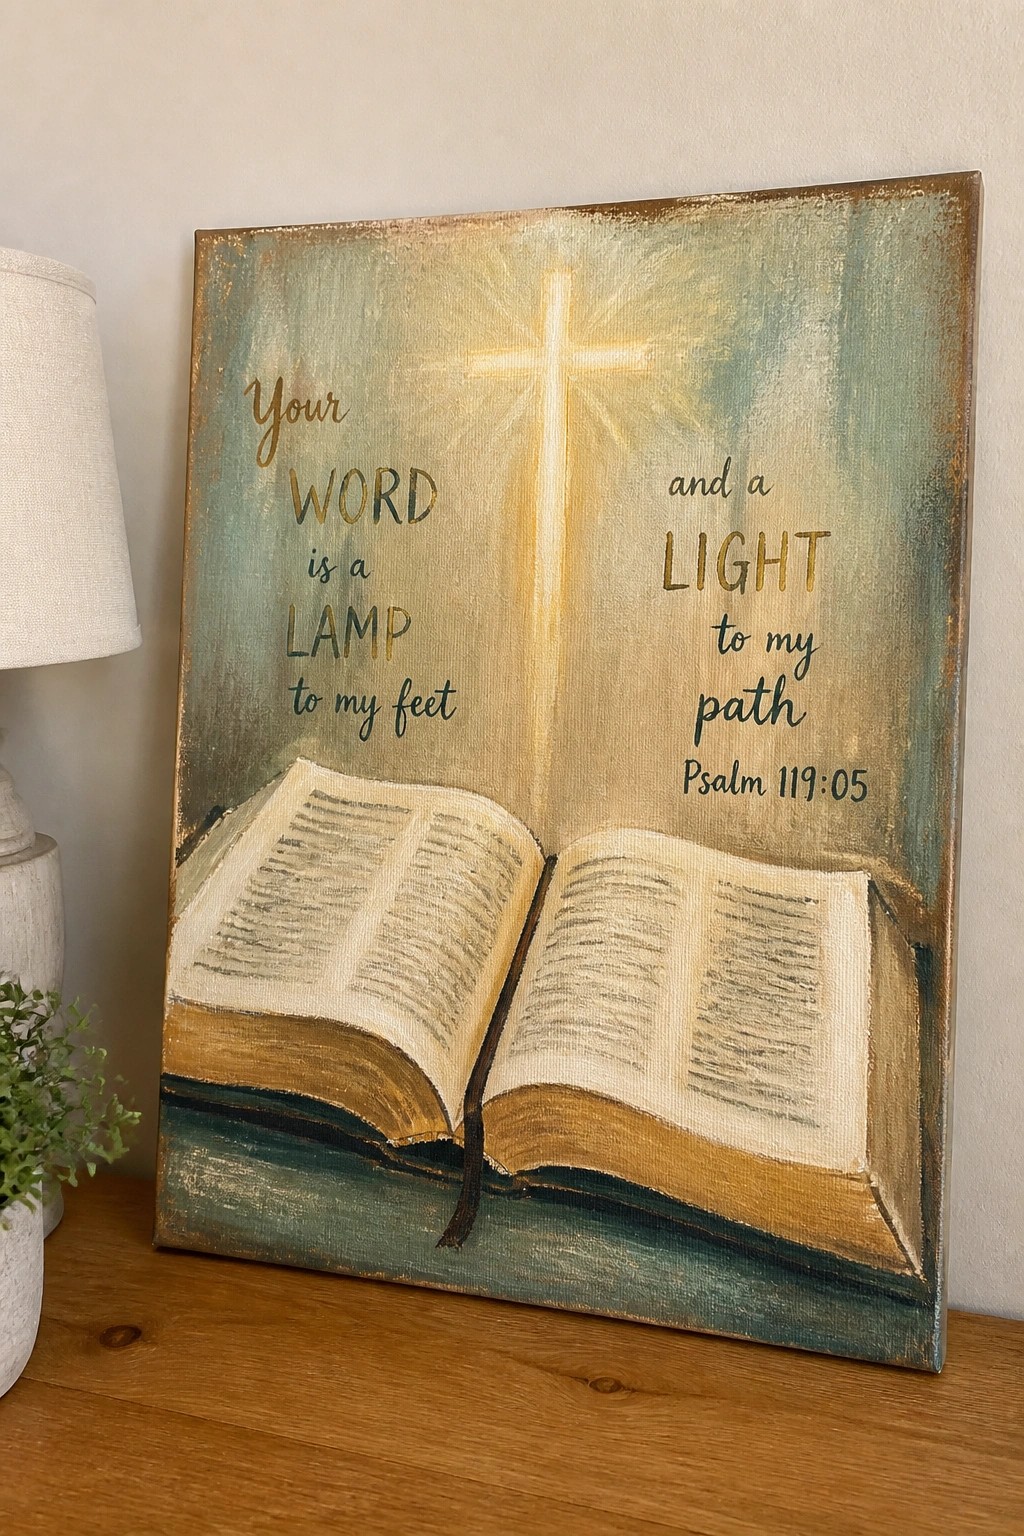 Your
WORD
is a
LAMP
to my feet
and a
LIGHT
to my
path
Psalm 119:05